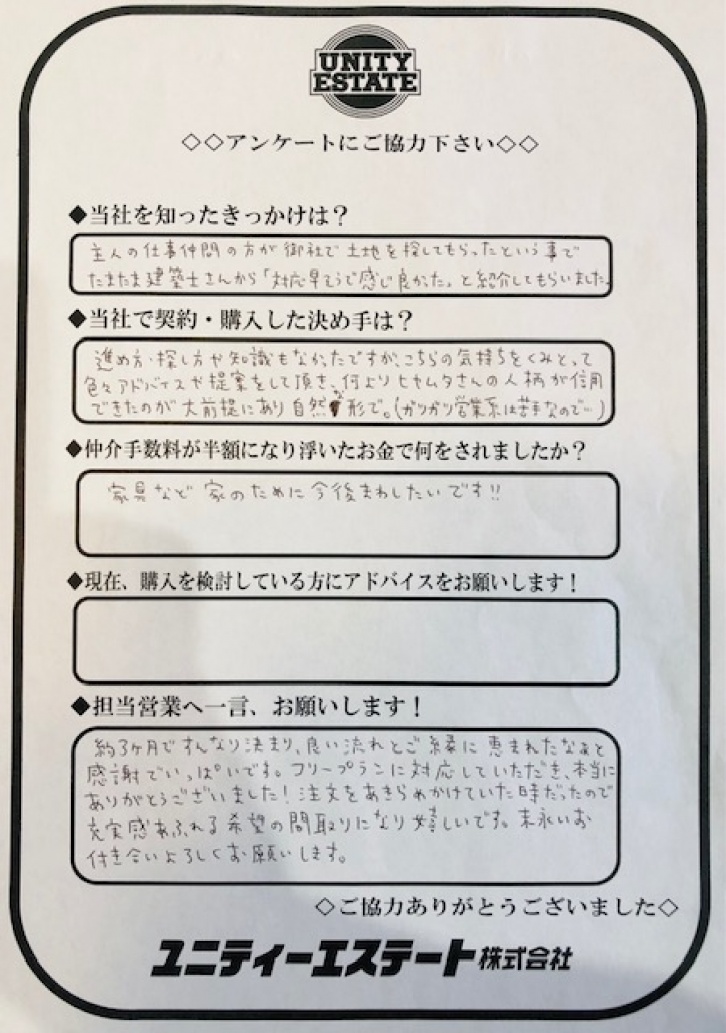 UNITY
ESTATE
◇◇アンケートにご協力下さい◇◇
◆当社を知ったきっかけは？
主人の仕事仲間の方が御社で土地を探してもらったという事で
たまたま建築士さんから「対応早そうで感じ良かった。」と紹介してもらいました。
◆当社で契約・購入した決め手は？
進め方・探し方や知識もなかったですが、こちらの気持ちをくみとって
色々アドバイスや提案をして頂き、何よりヒヤムタさんの人柄が信用
できたのが大前提にあり自然な形で。(ガツガツ営業系は苦手なので…)
◆仲介手数料が半額になり浮いたお金で何をされましたか？
家具など家のために今後まわしたいです!!
◆現在、購入を検討している方にアドバイスをお願いします！
◆担当営業へ一言、お願いします！
約3ヶ月ですんなり決まり、良い流れとご縁に恵まれたなぁと
感謝でいっぱいです。フリープランに対応していただき、本当に
ありがとうございました！注文をあきらめかけていた時だったので
充実感あふれる希望の間取りになり嬉しいです。末永いお
付き合いよろしくお願いします。
◇ご協力ありがとうございました◇
ユニティーエステート株式会社